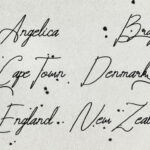 Angelica Br
Cape Town Denmark
England New Zea